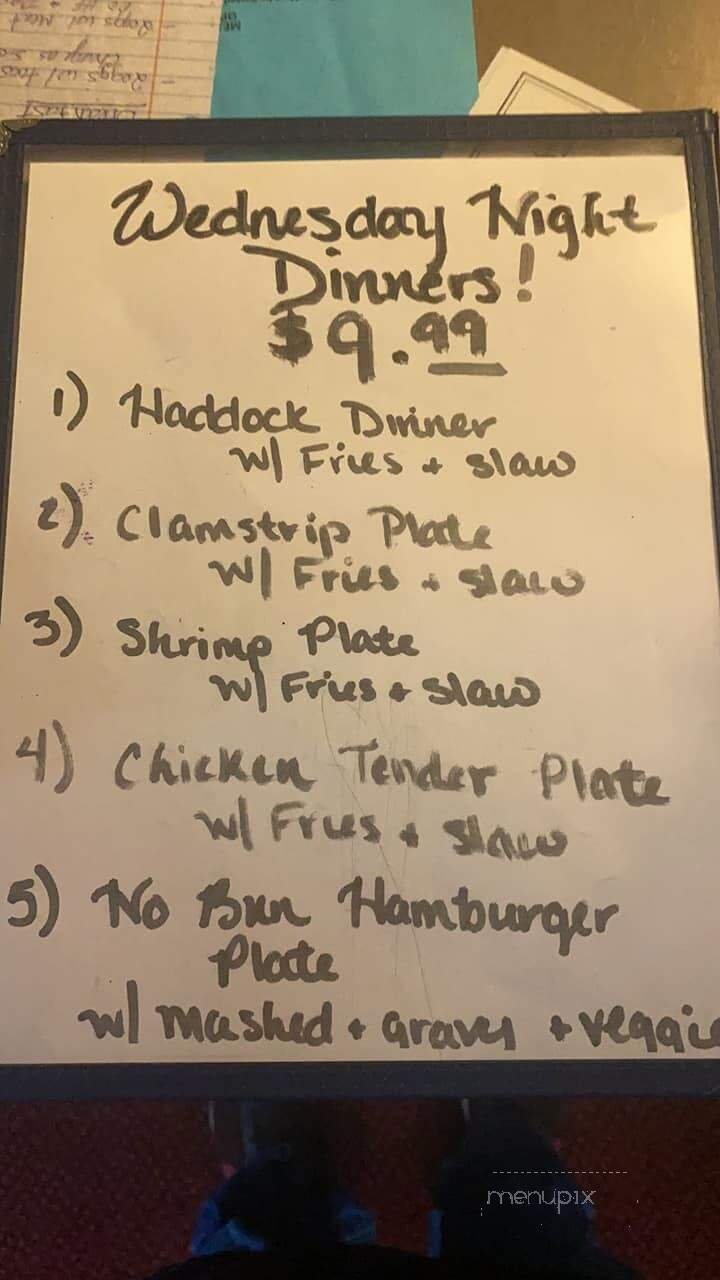 2 eggs w/ Meat
2 eggs w/
Wednesday Night
Dinners!
$9.99
1) Haddock Dinner
w/ Fries + slaw
2) Clamstrip Plate
w/ Fries + slaw
3) Shrimp Plate
w/ Fries + slaw
4) Chicken Tender Plate
w/ Fries + slaw
5) No Bun Hamburger
Plate
w/ mashed + gravy + veggie
menupix